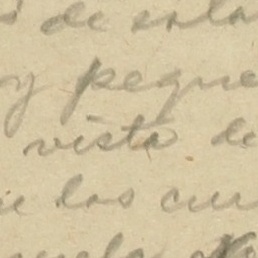 de sola
y peque
vista de
las cur